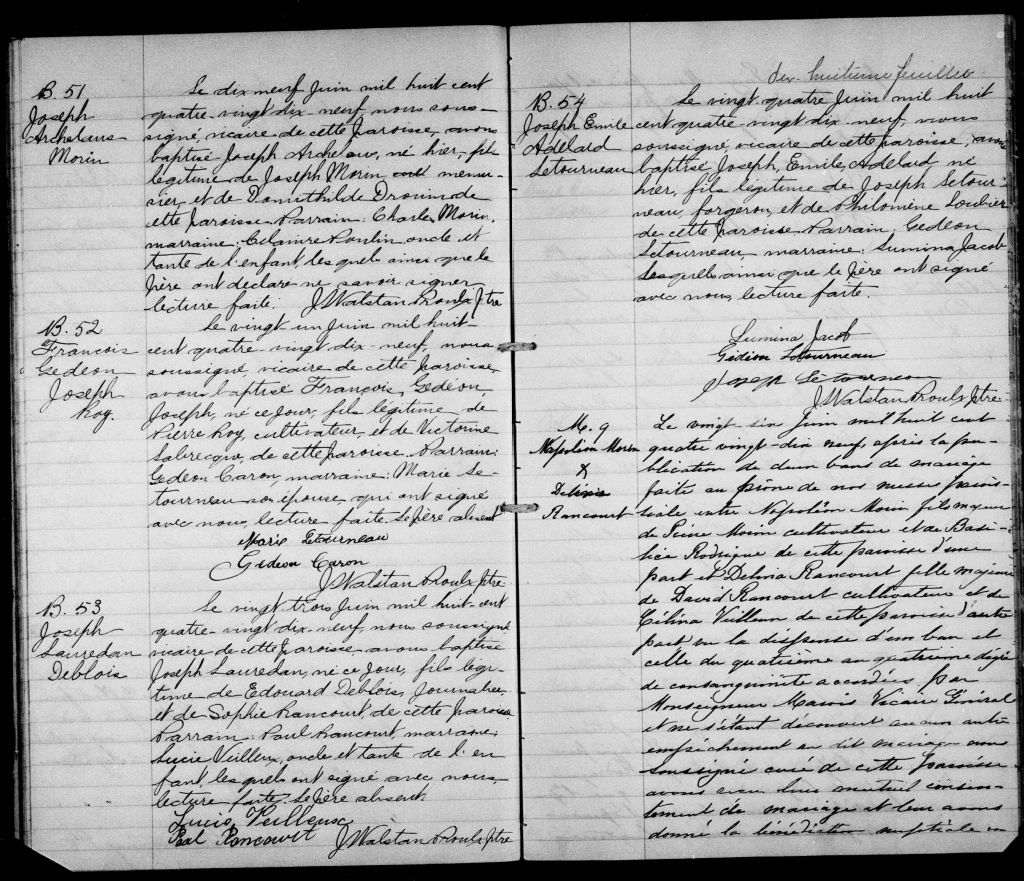 B. 51
Joseph
Archelaus
Morin
Le dix neuf Juin mil huit cent
quatre-vingt dix-neuf, nous sous-
signé, vicaire de cette paroisse, avons
baptisé Joseph Archelaus, né hier, fils
légitime de Joseph Morin menui-
sier, et de Domithilde Drouin de
cette paroisse. Parrain: Charles Morin,
marraine: Poulin, oncle et
tante de l'enfant, les quels ainsi que le
père ont déclaré ne savoir signer
lecture faite. J Walstan Proulx ptre
B. 52
Francois
Gedeon
Joseph
Roy.
Le vingt un Juin mil huit-
cent quatre-vingt dix-neuf, nous
soussigné, vicaire de cette paroisse,
avons baptisé François, Gedéon,
Joseph, né ce jour, fils légitime de
Pierre Roy, cultivateur, et de Victorine
Labrecque, de cette paroisse. Parrain:
Gedeon Caron, marraine: Marie Le-
tourneau son épouse qui ont signé
avec nous, lecture faite. Le père absent
Marie Letourneau
Gideon Caron
J Walstan Proulx ptre
B. 53
Joseph
Lauredan
Deblois
Le vingt trois Juin mil huit-cent
quatre-vingt dix-neuf, nous soussigné
vicaire de cette paroisse, avons baptisé
Joseph Lauredan, né ce jour, fils légi-
time de Edouard Deblois, journalier,
et de Sophie Rancourt, de cette paroisse
Parrain: Paul Rancourt, marraine:
Lucie Veilleux, oncle et tante de l'en
fant, les quels ont signé avec nous,
lecture faite. Le père absent.
Lucie Veilleux
Paul Rancourt J Walstan Proulx ptre
dix-huitième feuillet
B. 54
Joseph Emile
Adelard
Letourneau
Le vingt quatre Juin mil huit
cent quatre-vingt dix-neuf, nous
soussigné vicaire de cette paroisse, avons
baptisé Joseph, Emile, Adelard, né
hier, fils légitime de Joseph Letour-
neau, forgeron, et de Philomène Loubier
de cette paroisse. Parrain: Gedeon
Letourneau, marraine: Lumina Jacob
lesquels ainsi que le père ont signé
avec nous, lecture faite.
Lumina Jacob
Gédéon Letourneau
Joseph Létourneau
J Walstan Proulx ptre
M. 9
Napoléon Morin
&
Delina
Rancourt
Le vingt six Juin mil huit cent
quatre vingt-dix neuf, après la pu-
blication de deux bans de mariage
faite au prône de nos messes parois-
siale entre Napoléon Morin fils majeur
de Pierre Morin cultivateur et de Basi-
lice Rodrigue de cette paroisse d'une
part et Delina Rancourt fille majeure
de David Rancourt cultivateur et de
Célina Veilleux de cette paroisse d'autre
part vu la dispense d'un ban et
celle du quatrième au quatrième degré
de consanguinité accordées par
Monseigneur Marois Vicaire Général
et ne s'étant découvert aucun autre
empêchement au dit mariage nous
soussigné curé de cette paroisse
avons reçu leur mutuel consen-
tement de mariage et leur avons
donné la bénédiction nuptiale en